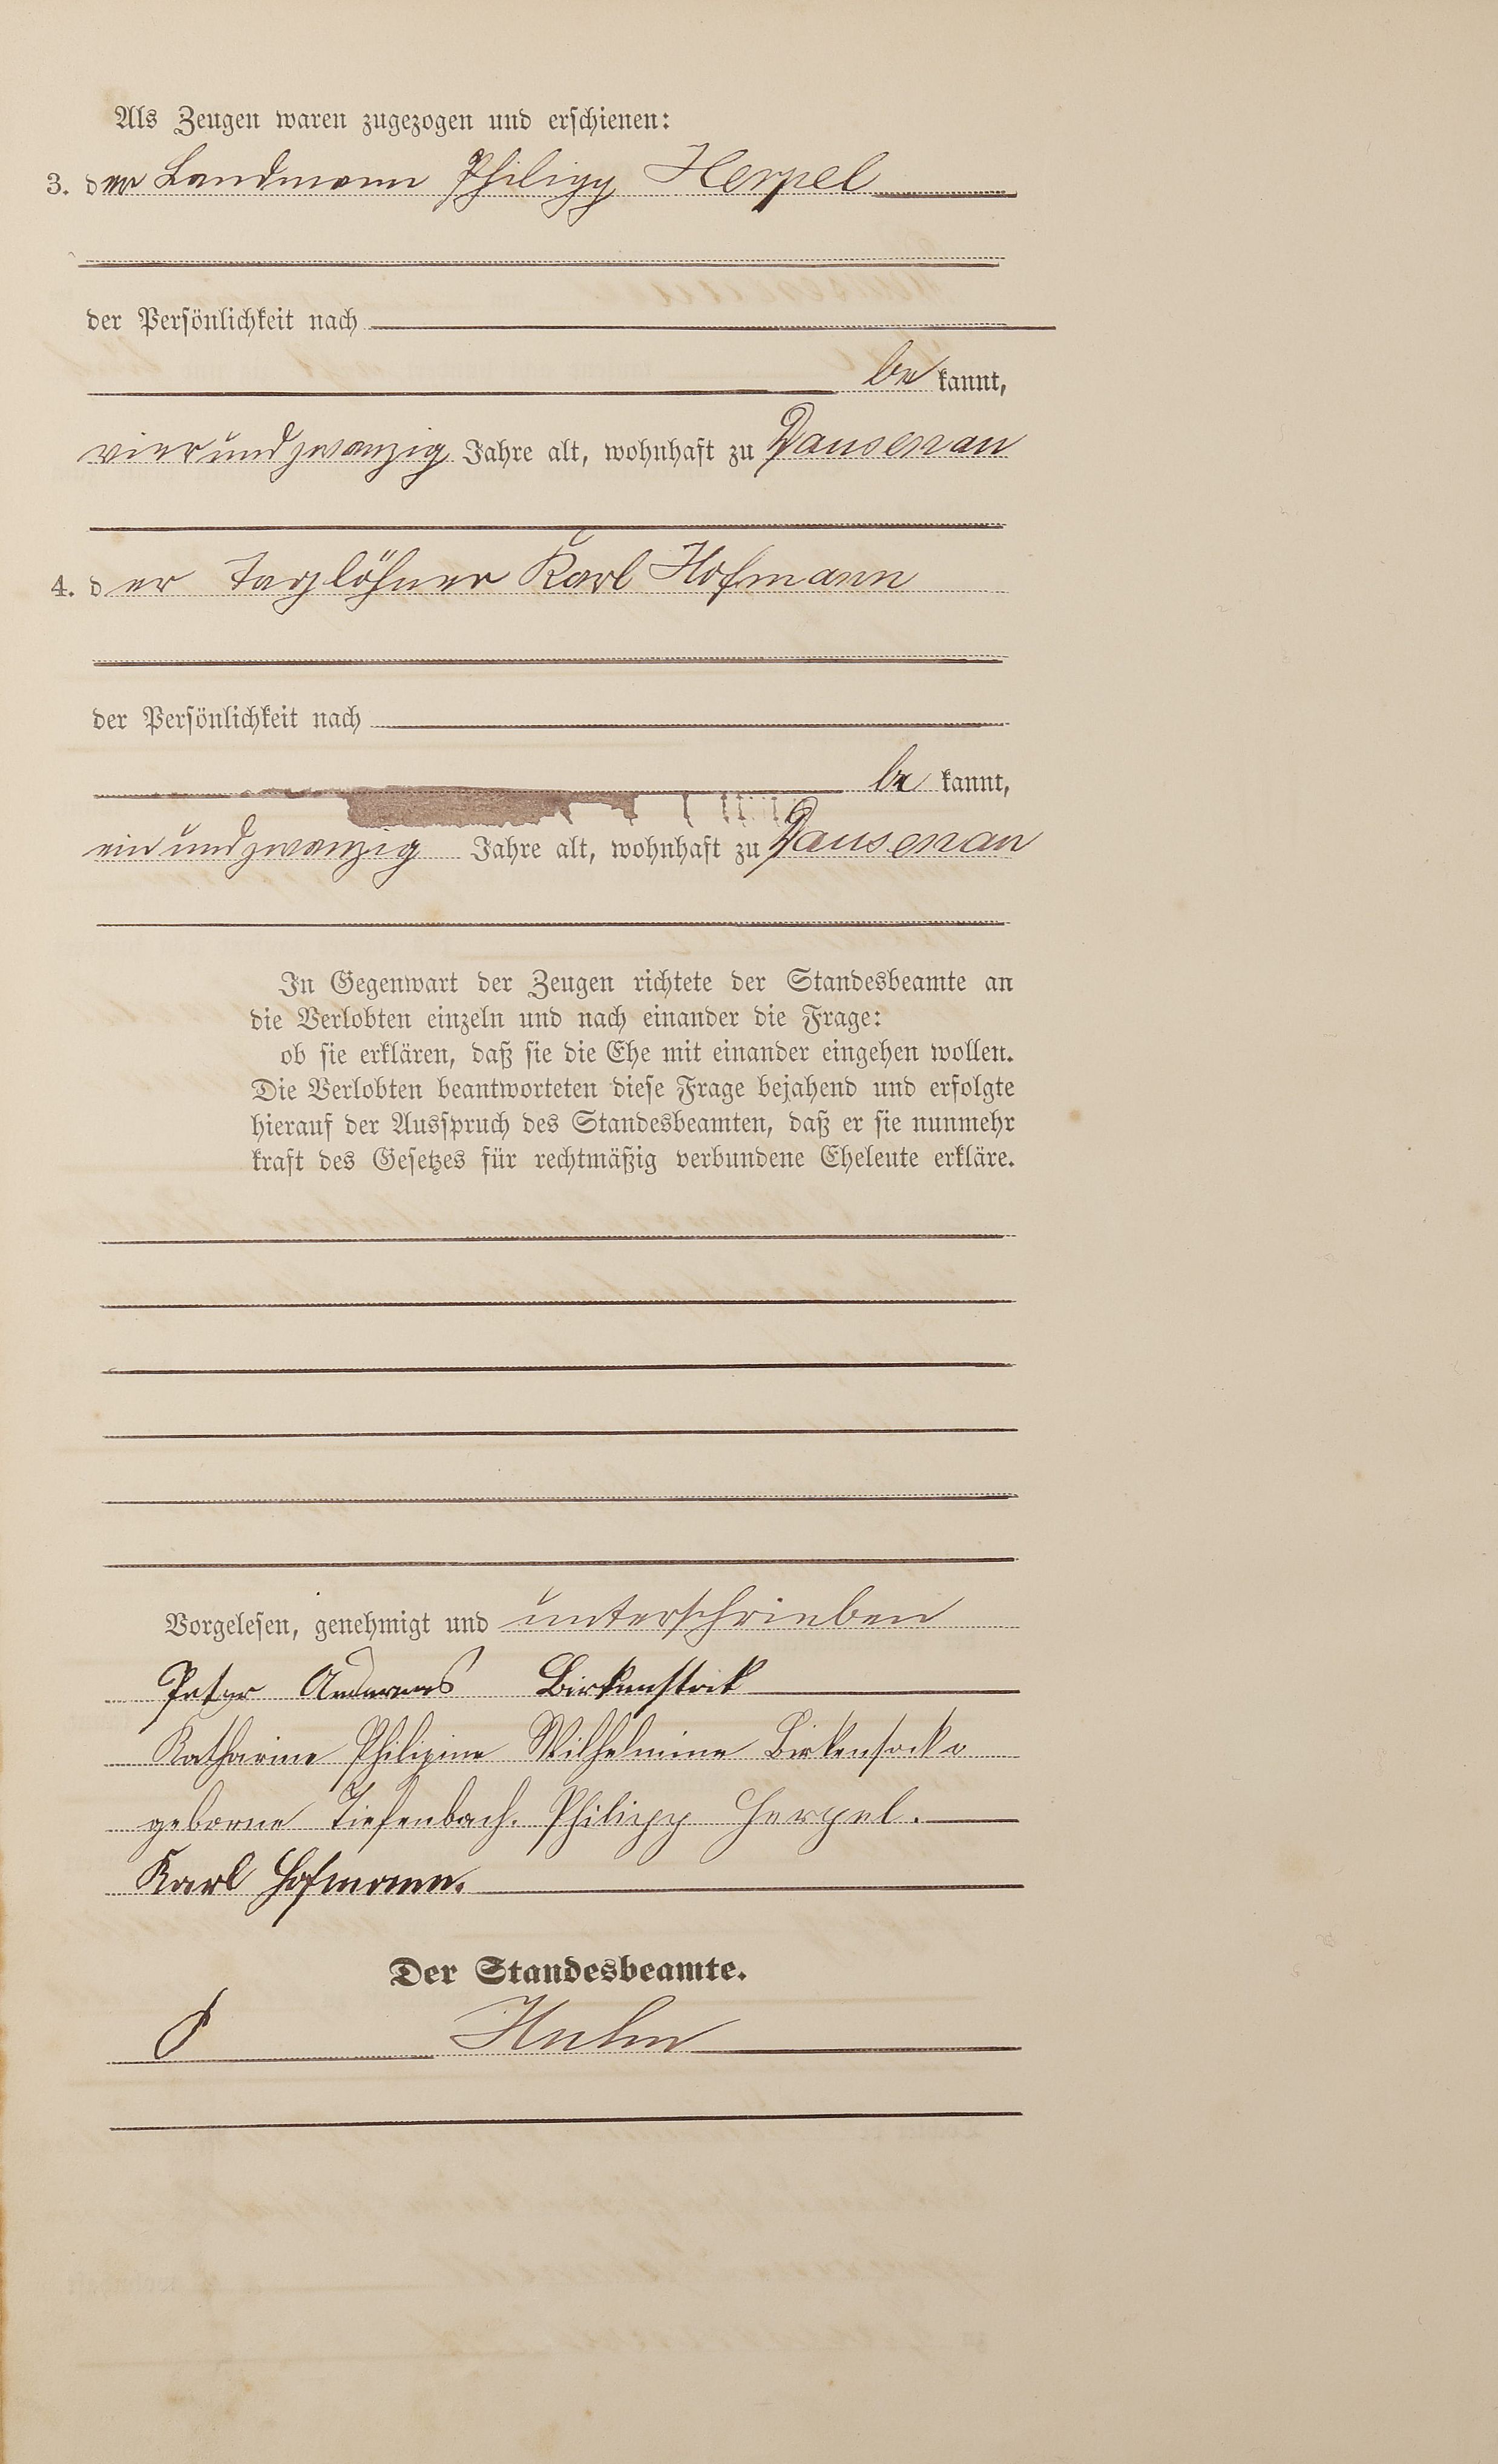 Als Zeugen waren zugezogen und erschienen:
3. der Landmann Philipp Herpel
der Persönlichkeit nach
be kannt,
vierundzwanzig Jahre alt, wohnhaft zu Dausenau
4. der Taglöhner Karl Hofmann
der Persönlichkeit nach
be kannt,
einundzwanzig Jahre alt, wohnhaft zu Dausenau
In Gegenwart der Zeugen richtete der Standesbeamte an
die Verlobten einzeln und nach einander die Frage:
ob sie erklären, daß sie die Ehe mit einander eingehen wollen.
Die Verlobten beantworteten diese Frage bejahend und erfolgte
hierauf der Ausspruch des Standesbeamten, daß er sie nunmehr
kraft des Gesetzes für rechtmäßig verbundene Eheleute erkläre.
Vorgelesen, genehmigt und unterschrieben
Peter Andreas Birkenstock
Katharine Philipine Wilhelmine Birkensock
geborne Tiefenbach. Philipp Herpel.
Karl Hofmann.
Der Standesbeamte.